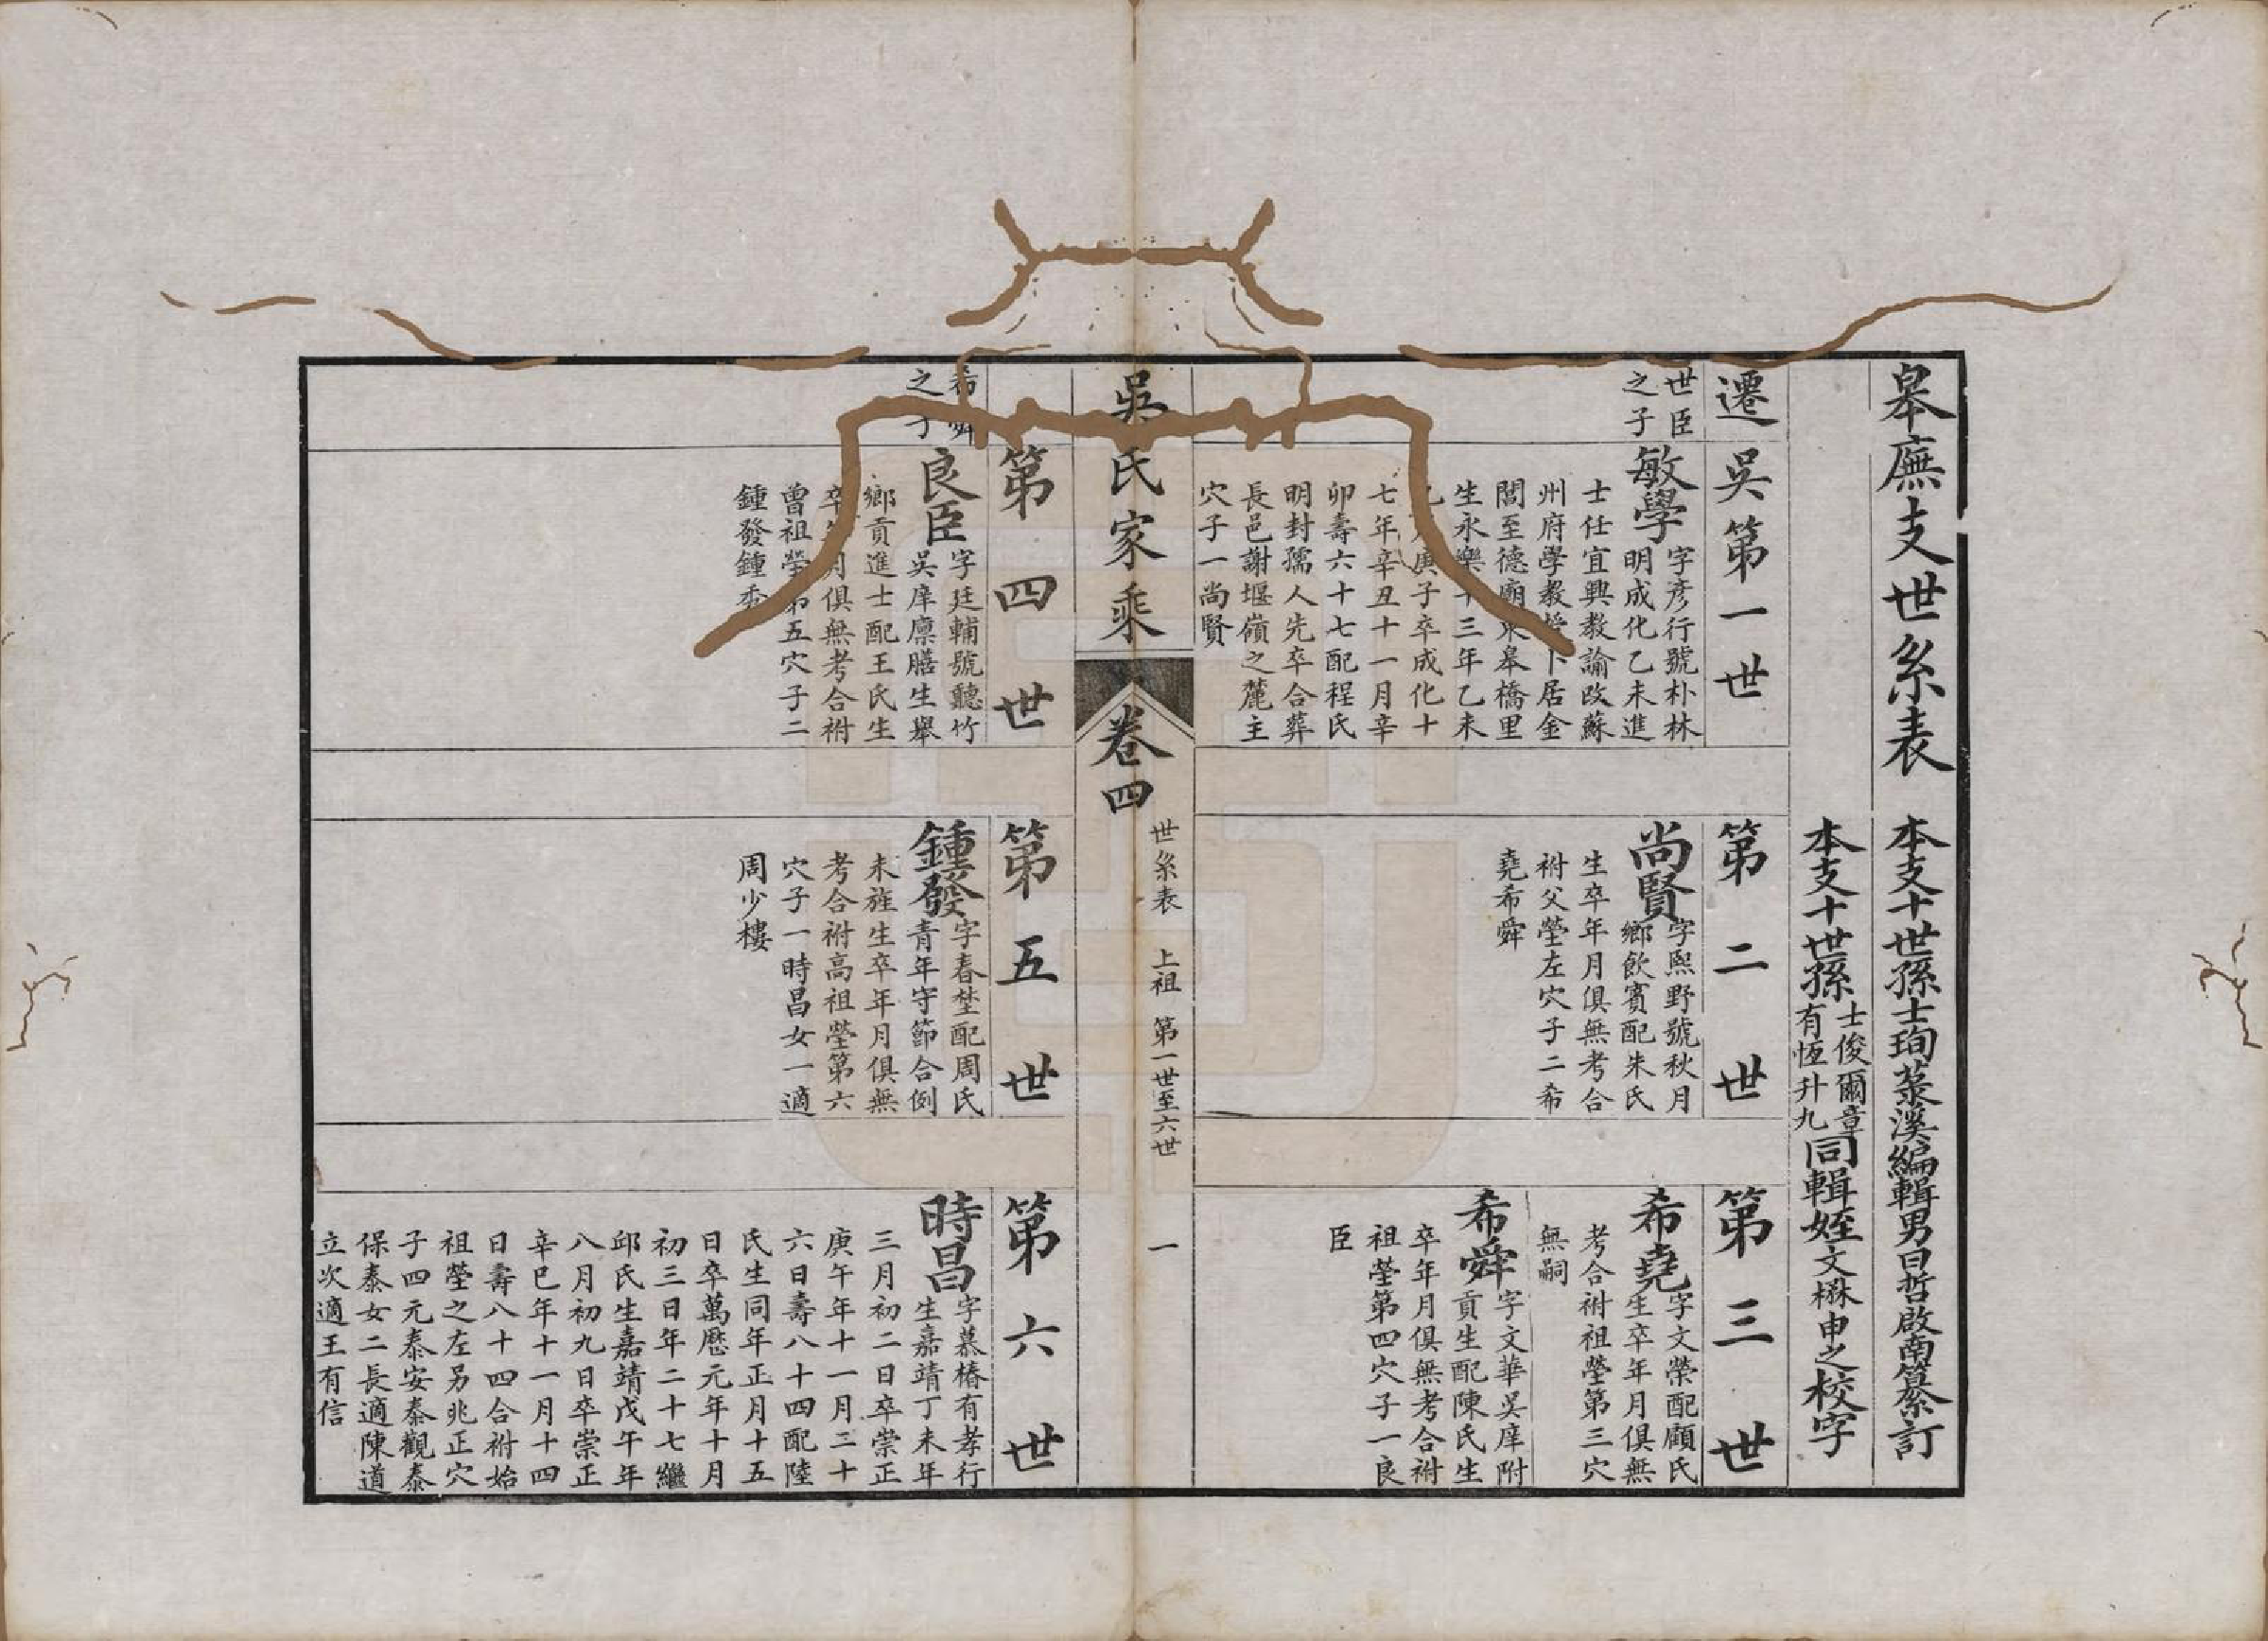 皋廡支世系表
本支十世孫士珣菉溪編輯男曰哲啟南纂訂
本支十世孫
士俊爾章
有恆升九
同輯姪文楙申之校字
遷吳第一世
世臣
之子
敏學
字彥行號朴林
明成化乙未進
士任宜興教諭改蘇
州府學教 卜居金
閶至德廟東皋橋里
生永樂十三年乙未
庚子卒成化十
七年辛丑十一月辛
卯壽六十七配程氏
明封孺人先卒合葬
長邑謝堰嶺之麓主
穴子一尚賢
第二世
尚賢
字熙野號秋月
鄉飲賓配朱氏
生卒年月俱無考合
祔父塋左穴子二希
堯希舜
第三世
希堯
字文榮配顧氏
生卒年月俱無
考合祔祖塋第三穴
無嗣
希舜
字文華吳庠附
貢生配陳氏生
卒年月俱無考合祔
祖塋第四穴子一良
臣
吳氏家乘
卷四
世系表 上祖 第一世至六世
一
第四世
希舜
之子
良臣
字廷輔號聽竹
吳庠廩膳生舉
鄉貢進士配王氏生
卒年月俱無考合祔
曾祖塋第五穴子二
鍾發鍾秀
第五世
鍾發
字春埜配周氏
青年守節合例
未旌生卒年月俱無
考合祔高祖塋第六
穴子一時昌女一適
周少樓
第六世
時昌
字慕椿有孝行
生嘉靖丁未年
三月初二日卒崇正
庚午年十一月二十
六日壽八十四配陸
氏生同年正月十五
日卒萬歷元年十月
初三日年二十七繼
邱氏生嘉靖戊午年
八月初九日卒崇正
辛巳年十一月十四
日壽八十四合祔始
祖塋之左另兆正穴
子四元泰安泰觀泰
保泰女二長適陳道
立次適王有信